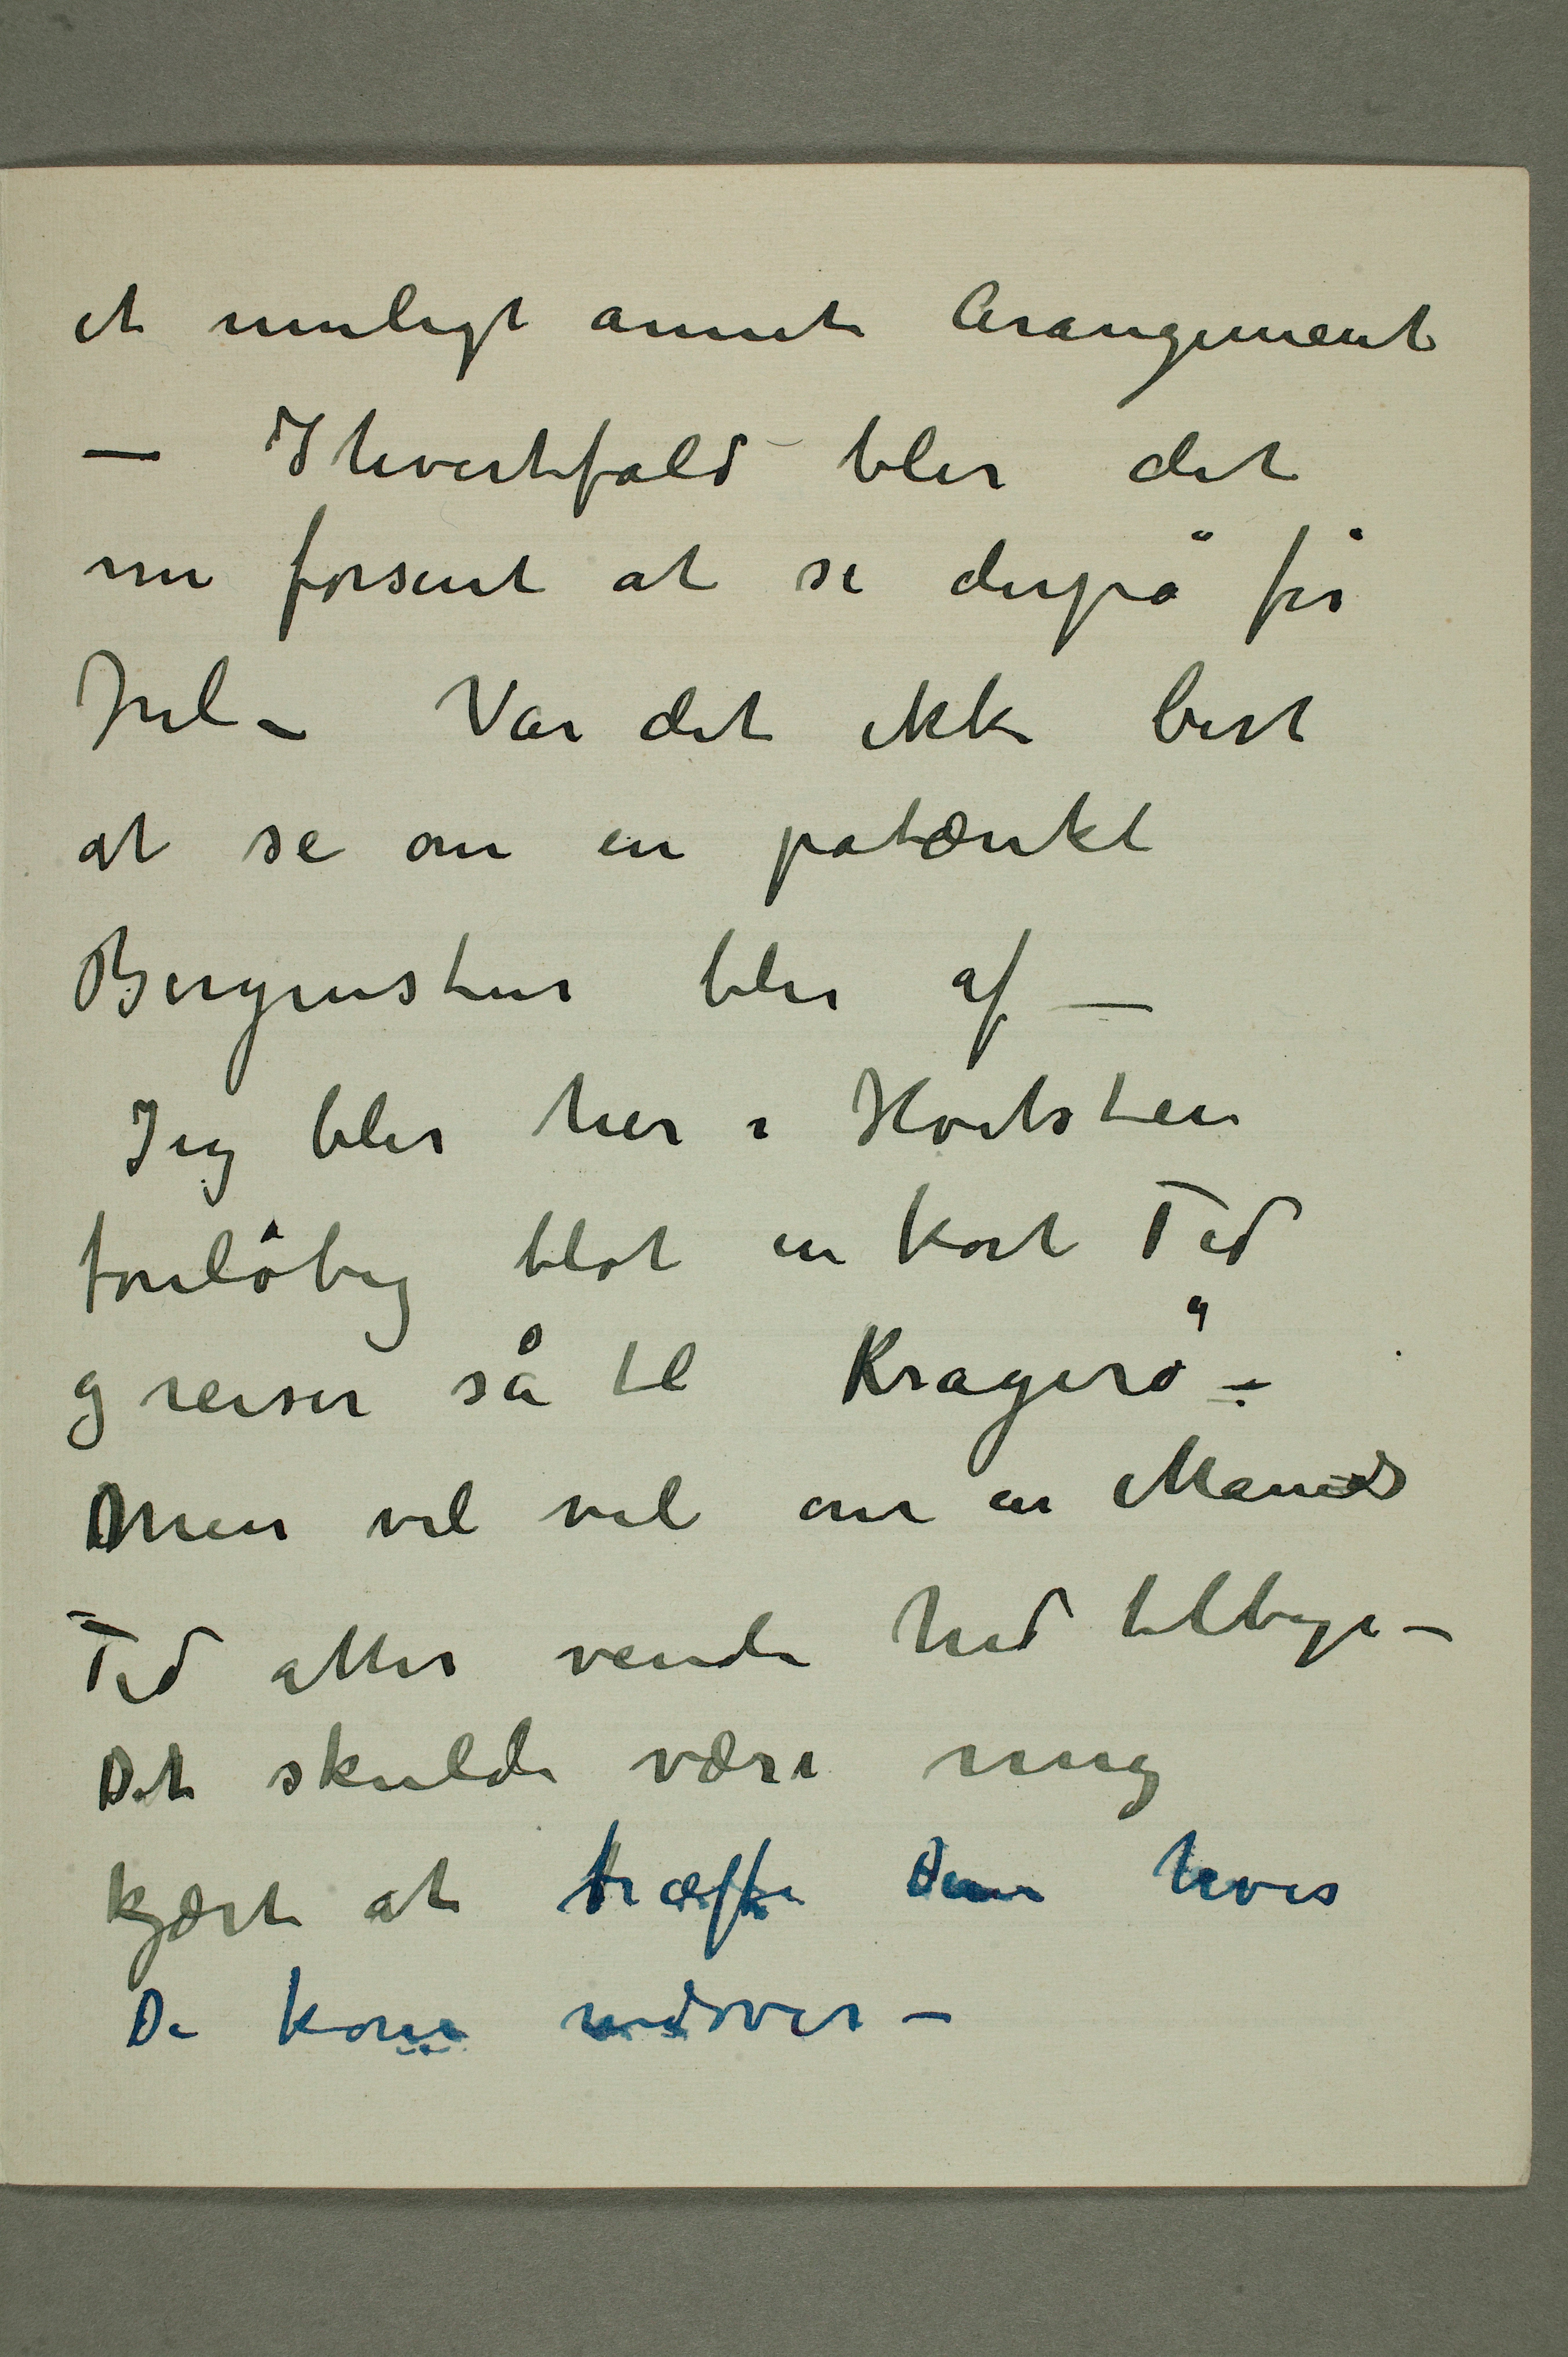 et muligt annet Arangement
— Ihvertfald blir det
nu forsent at se derpå før
Jul – Var det ikke best
at se om en patænkt
Bergenstur blir af —
Jeg blir her i Hvitsten
foreløbig blot en kort Tid
og reiser så til Kragerø –
Men vil vel om en Maaneds
Tid atter vende hid tilbage –
Det skulde være mig
kjært at træffe Dem hvis
De kom nedover –